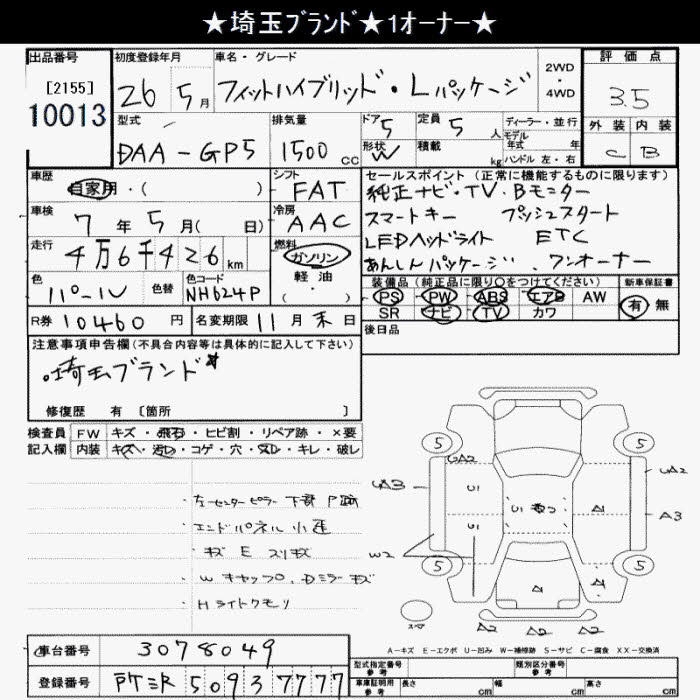 ★埼玉ブランド★1オーナー★
出品番号 [2155] 10013
初度登録年月 26 5月
車名・グレード フィットハイブリッド・Lパッケージ
2WD・4WD
評価点 3.5
外装 C 内装 B
型式 DAA-GP5
排気量 1500 CC
ドア 5 形状 W
定員 5 人 積載 kg
ディーラー・並行
モデル年式 年
ハンドル 左・右
車歴 自家用・( )
シフト FAT
車検 7年5月( 日)
冷房 AAC
走行 4万6千426km
燃料 ガソリン・軽油・( )
色 パール 色替
色コード NH624P
R券 10460円
名変期限 11月末日
セールスポイント (正常に機能するものに限ります)
純正ナビ・TV・Bモニター
スマートキー プッシュスタート
LEDヘッドライト ETC
あんしんパッケージ、ワンオーナー
装備品(純正品に限り○をつけてください)
PS PW ABS エアB AW
SR ナビ TV カワ
新車保証書 有 無
後日品
注意事項申告欄(不具合内容等は具体的に記入して下さい)
・埼玉ブランド
修復歴 有 [箇所 ]
検査員記入欄
FW キズ・飛石・ヒビ割・リペア跡・×要
内装 キズ・汚レ・コゲ・穴・スレ・キレ・破レ
・左センターピラー下部P跡
・エンドパネル小歪
・キズ E スリキズ
・W キャップ、Dミラーキズ
・Hライトクモリ
5 5 5 5
UA2 UA2
UA3 A3
W2
A2 A2 A2
スペア
A-キズ E-エクボ U-凹み W-補修跡 S-サビ C-腐食 XX-交換済
車台番号 3078049
登録番号 所沢 509 37777
型式指定番号 参考
類別区分番号 参考
車庫証明用 参考 長さ cm 幅 cm 高さ cm